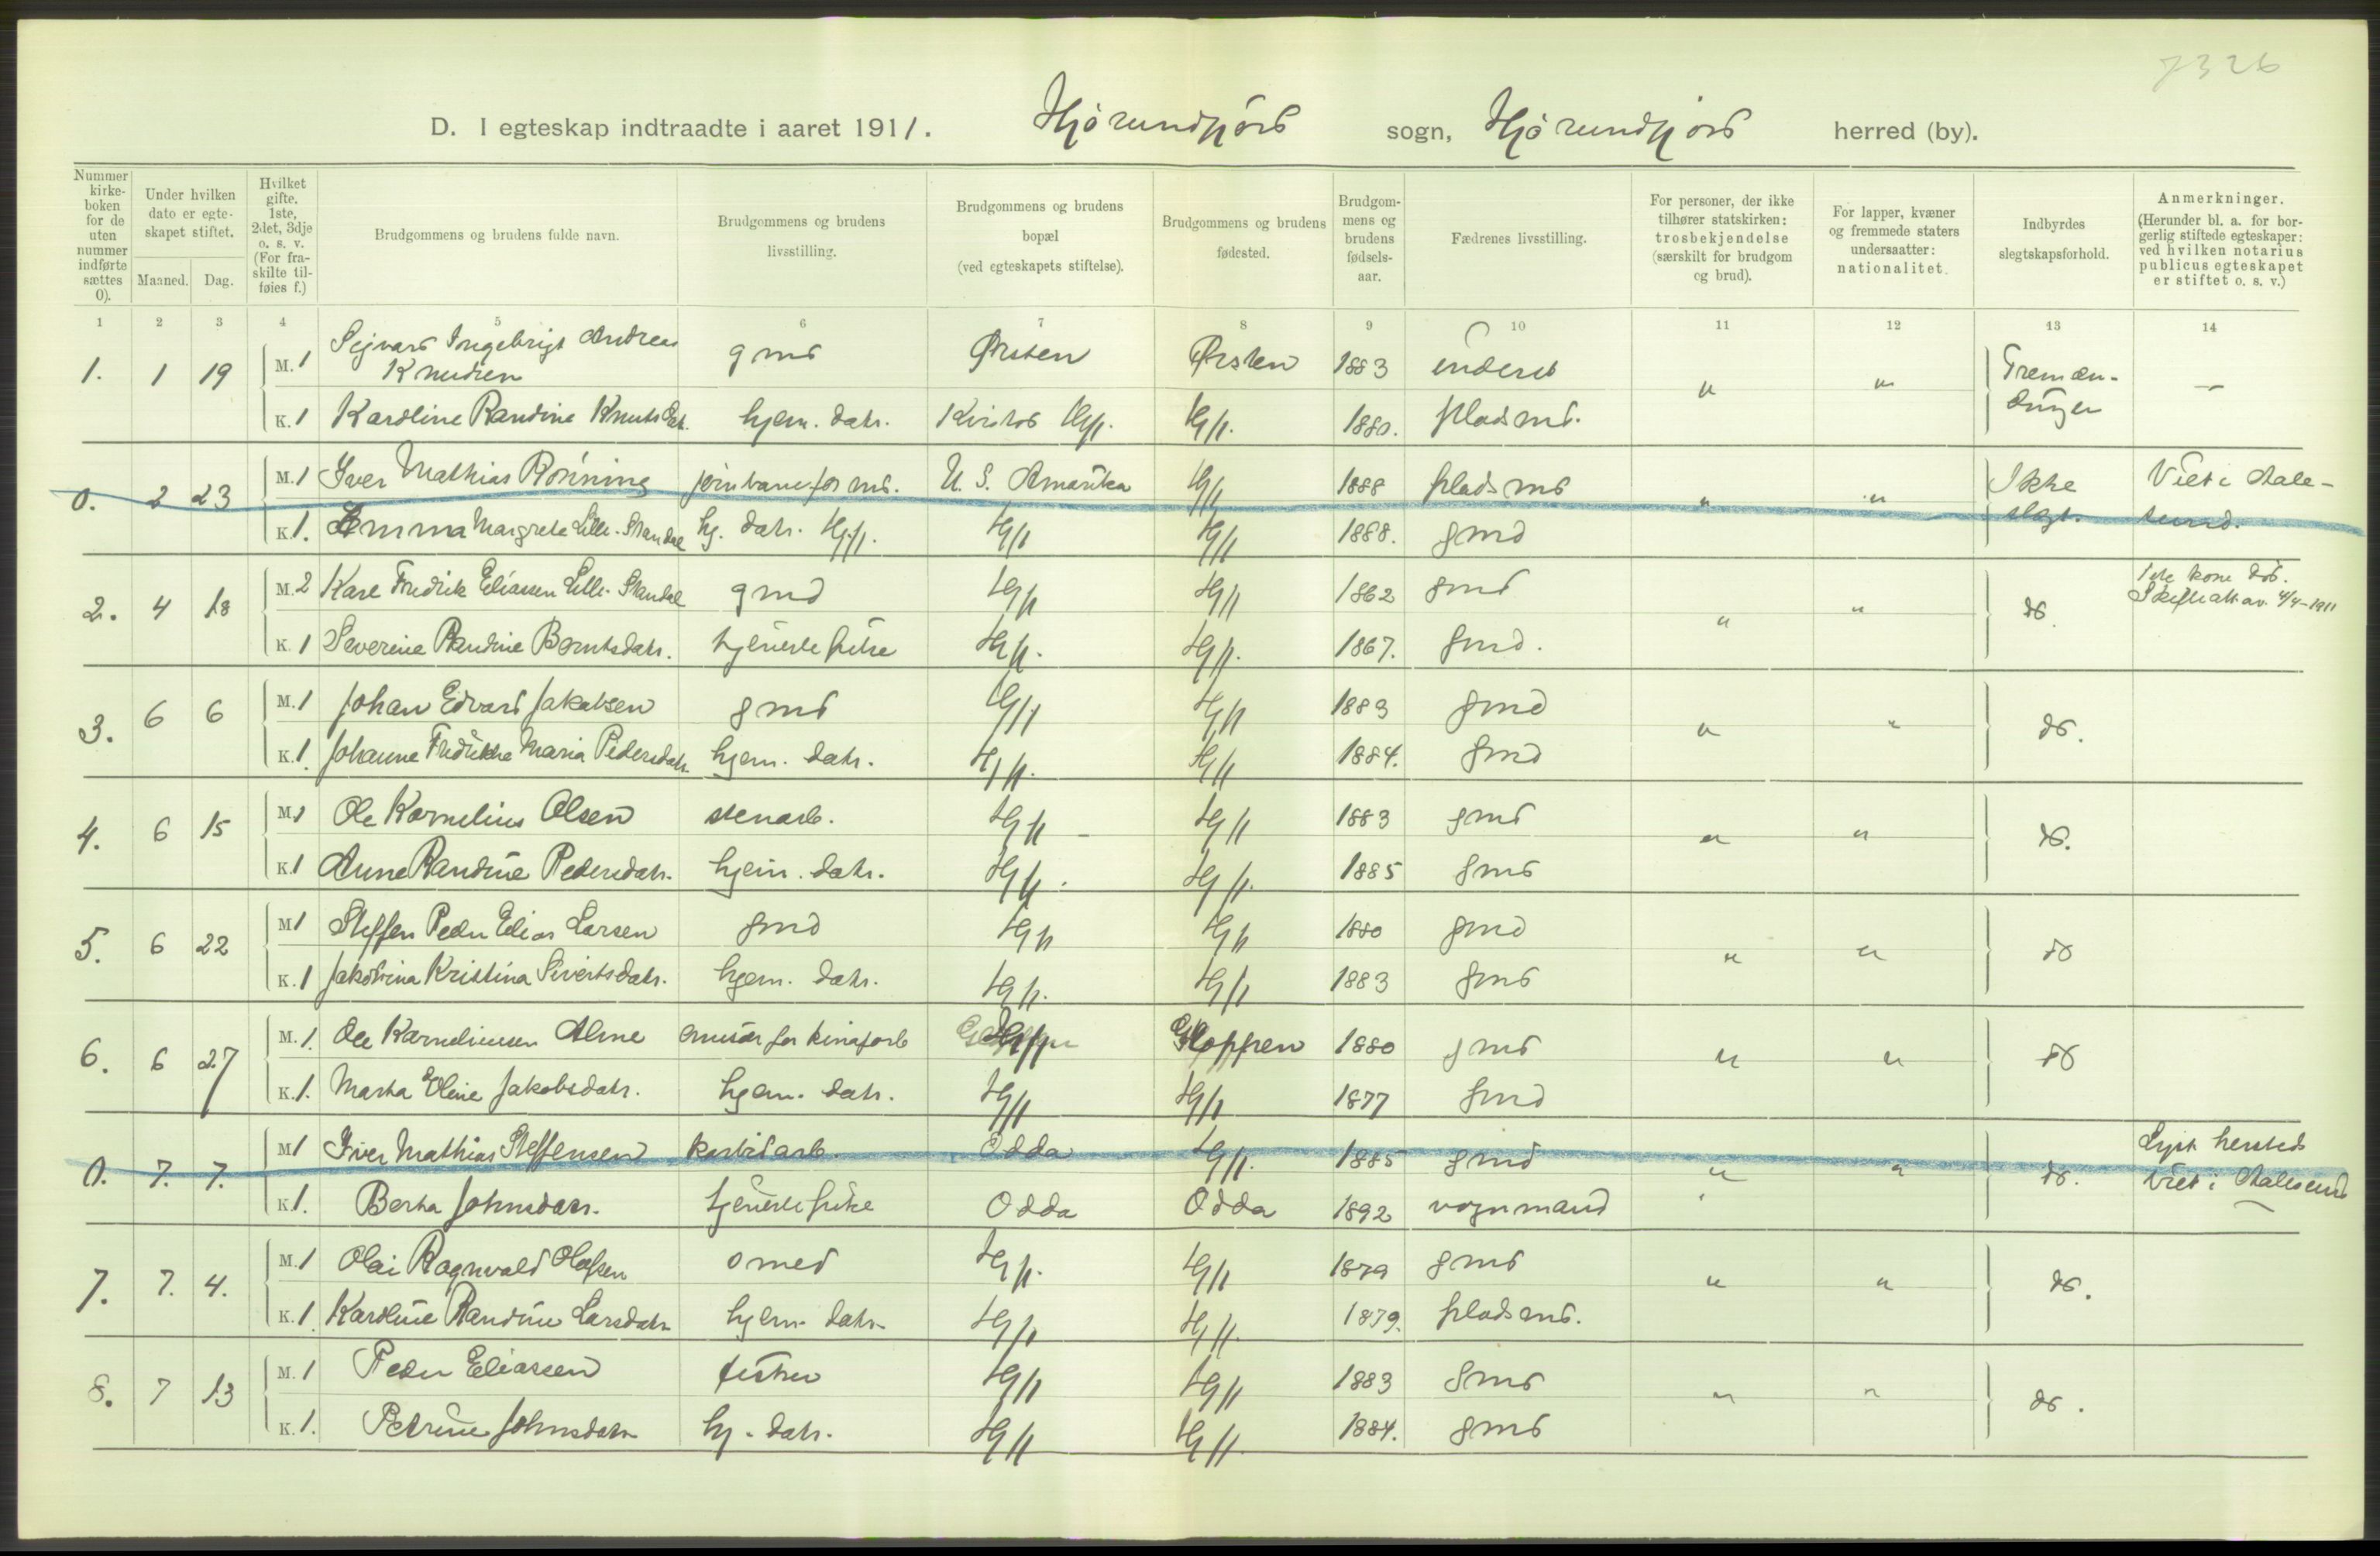 7326
D. I egteskap indtraadte i aaret 1911. Hjørundfjord sogn, Hjørundfjord herred (by).
Nummer kirkeboken for de uten nummer indførte sættes 0).
Under hvilken dato er egteskapet stiftet.
Maaned. Dag.
Hvilket gifte. 1ste, 2det, 3dje o. s. v. (For fraskilte tilføies f.)
Brudgommens og brudens fulde navn.
Brudgommens og brudens livsstilling.
Brudgommens og brudens bopæl (ved egteskapets stiftelse).
Brudgommens og brudens fødested.
Brudgommens og brudens fødselsaar.
Fædrenes livsstilling.
For personer, der ikke tilhører statskirken: trosbekjendelse (særskilt for brudgom og brud).
For lapper, kvæner og fremmede staters undersaatter: nationalitet.
Indbyrdes slegtskapsforhold.
Anmerkninger. (Herunder bl. a. for borgerlig stiftede egteskaper: ved hvilken notarius publicus egteskapet er stiftet o. s. v.)
1 2 3 4 5 6 7 8 9 10 11 12 13 14
1. 1 19 M. 1 Sigvard Ingebrigt Andreas Knudsen gmd Ørsten Ørsten 1883 inderst " " Tremændinger —
K. 1 Karoline Randine Knutsdatr. hjem. datr. Hjf. Hjf. 1880. pladsmd.
0. 2 23 M. 1 Iver Mathias Rønning jernbaneformd. U. S. Amerika Hjf 1888 pladsmd " " Ikke slegt. Viet i Aalesund.
K. 1. Emma Margrete Lille-Standal hj. datr. Hjf. Hjf Hjf 1888. gmd
2. 4 18 M. 2 Karl Fredrik Eliassen Lille-Standal gmd Hjf Hjf 1862 gmd " " do. 1ste kone død. Skifteatt. av 4/4-1911
K. 1 Severine Randine Berntsdatr. tjenestepike Hjf. Hjf. 1867. gmd.
3. 6 6 M. 1 Johan Edvard Jakobsen gmd Hjf Hjf 1883 gmd " " do.
K. 1. Johanne Fredrikke Maria Pedersdatr. hjem. datr. Hjf. Hjf 1884. gmd
4. 6 15 M. 1 Ole Kornelius Olsen stenarb. Hjf - Hjf 1883 gmd " " do.
K. 1 Anne Randine Pedersdatr. hjem. datr. Hjf. Hjf. 1885 gmd
5. 6 22 M. 1 Steffen Peder Elias Larsen gmd Hjf Hjf 1880 gmd " " do
K. 1 Jakobina Kristina Sivertsdatr. hjem. datr. Hjf. Hjf 1883 gmd
6. 6 27 M. 1. Ole Korneliussen Alme Hjf Gloppen 1880 gmd " " do
K. 1. Marta Oline Jakobsdatr. hjem. datr. Hjf Hjf 1877 gmd
0. 7. 7. M. 1 Iver Mathias Steffensen karbidarb. Odda Hjf. 1885 gmd " " do. Lyst hersteds Viet i Aalesund
K. 1. Berta Johnsdatr. tjenestepike Odda Odda 1892 vognmand
7. 7. 4. M. 1 Olai Ragnvald Olafsen smed Hjf. Hjf 1879 gmd " " do.
K. 1. Karoline Randine Larsdatr hjem. datr. Hjf Hjf. 1879. pladsmd.
8. 7 13 M. 1 Peder Eliassen fisker Hjf Hjf 1883 gmd " " do.
K. 1. Petrine Johnsdatr hj. datr. Hjf Hjf. 1884. gmd